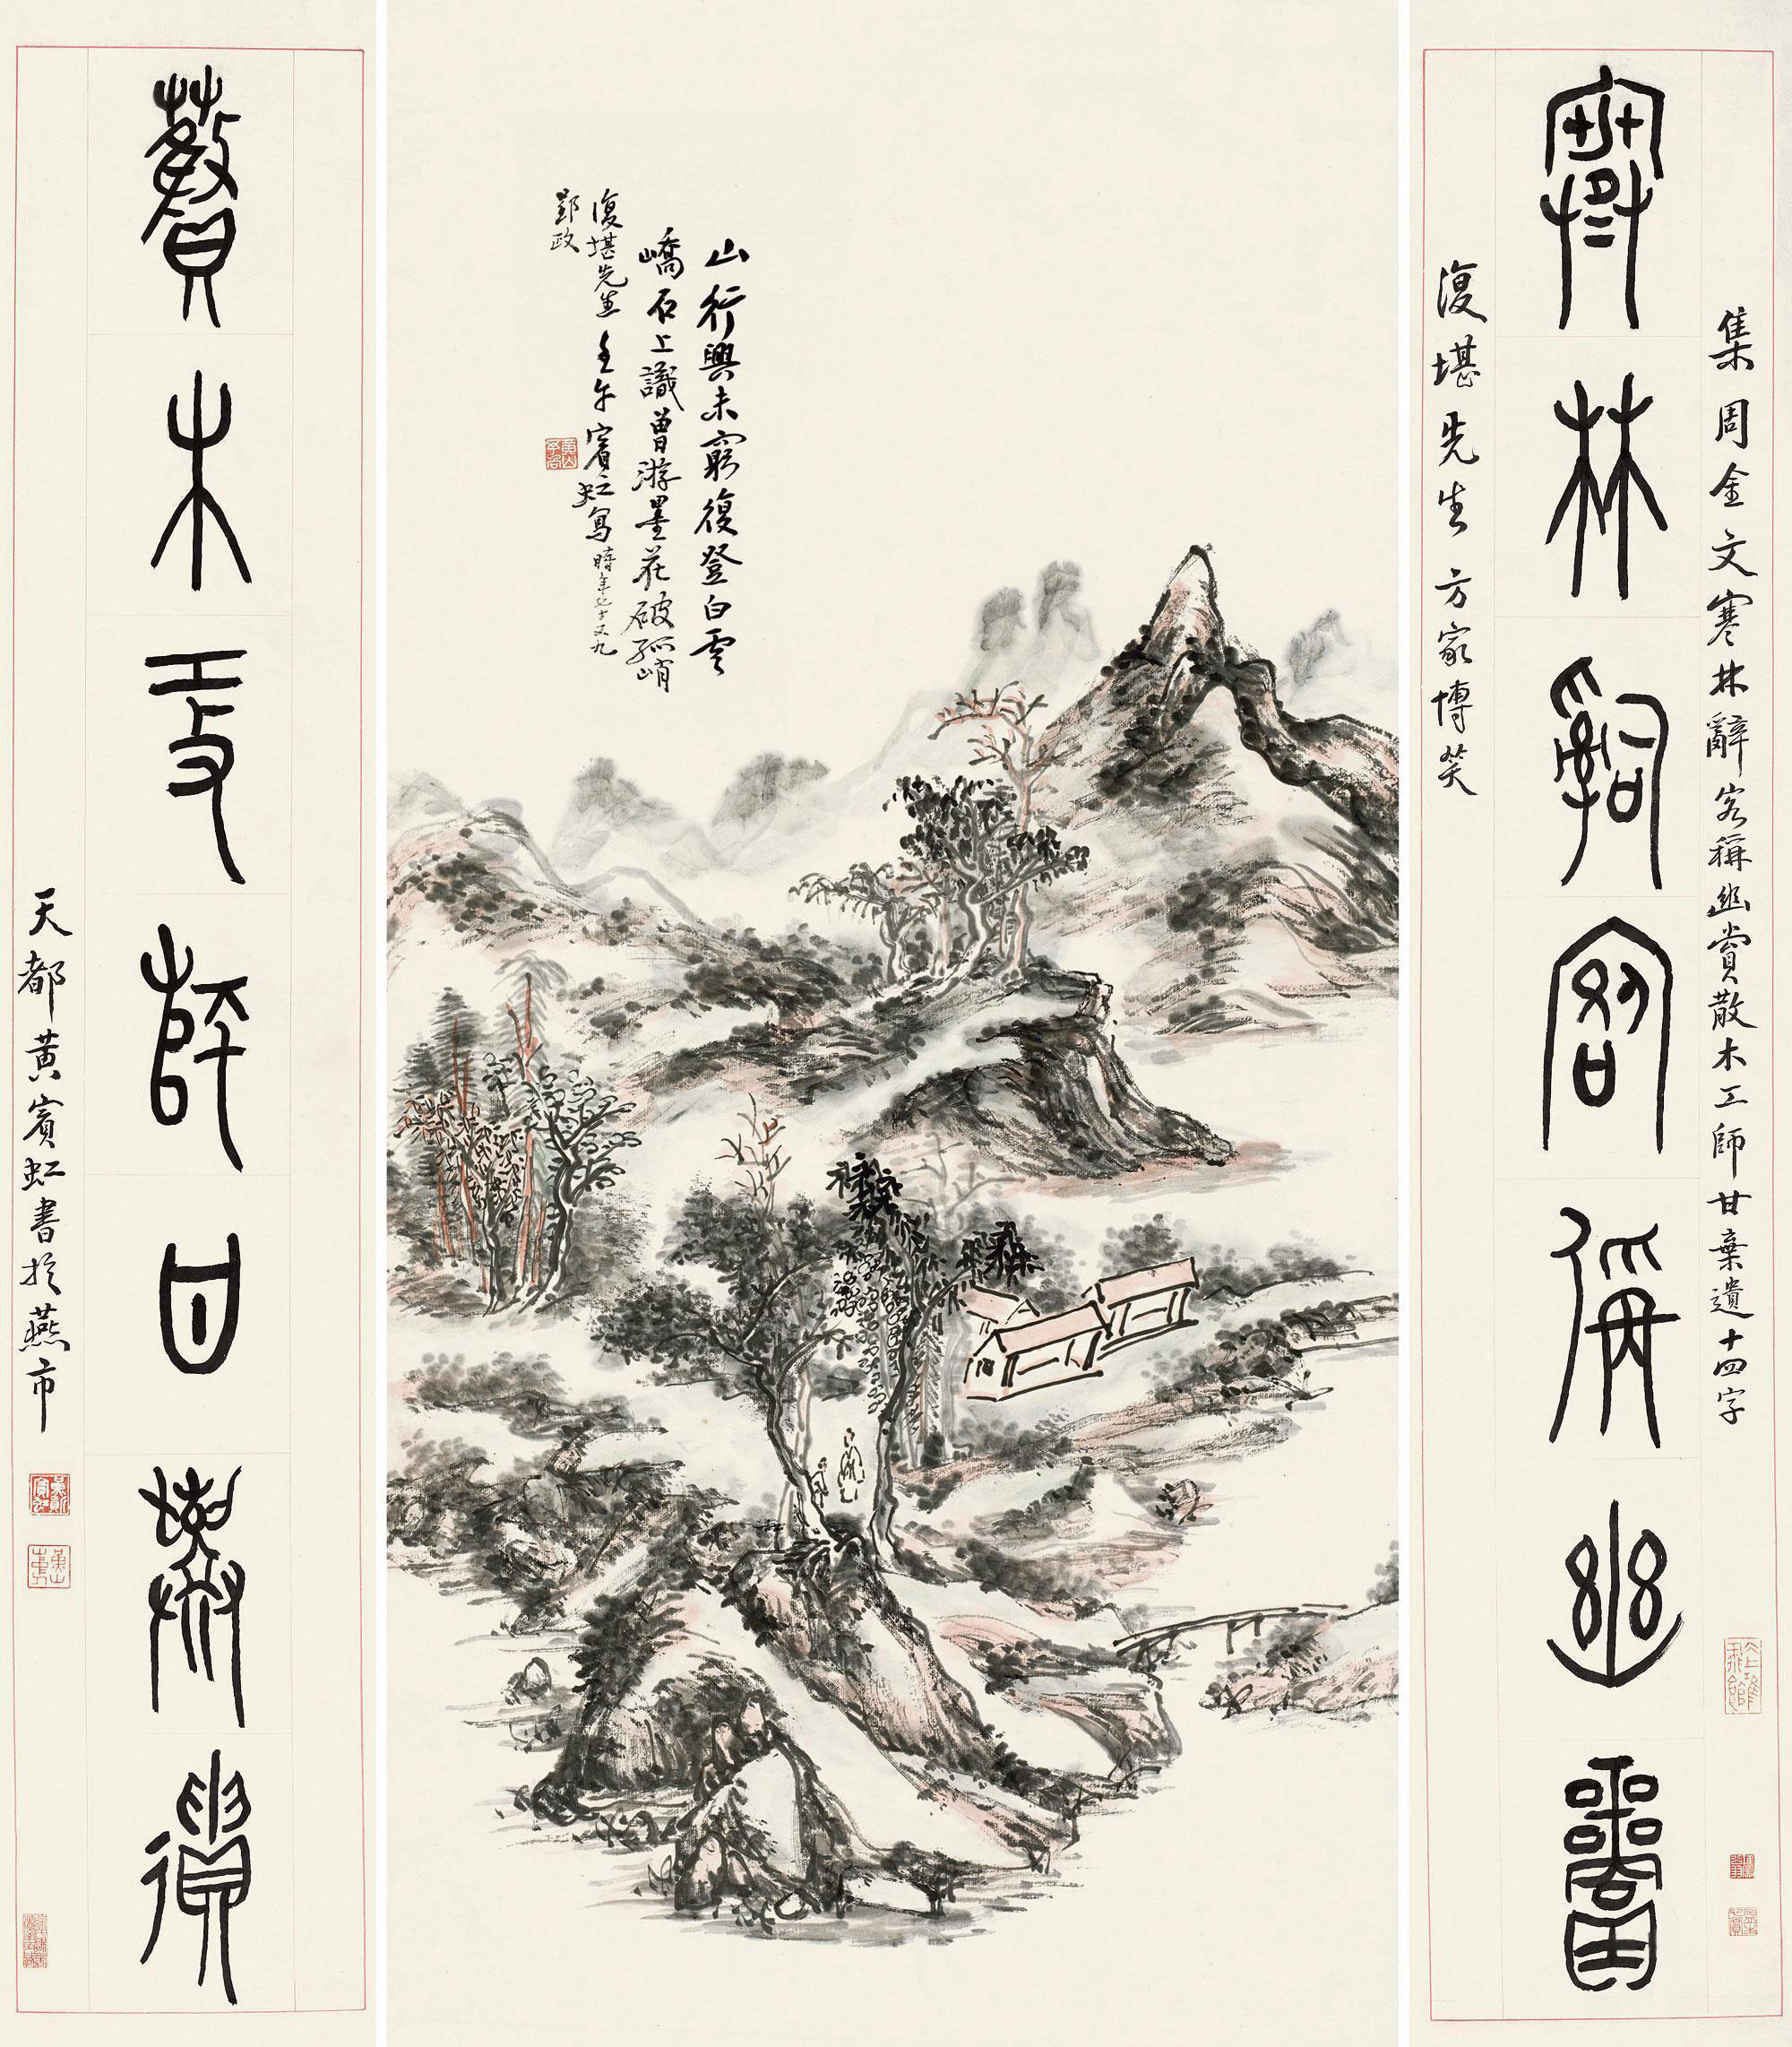 集周金文寒林辭客稱幽賞散木工師甘棄遺十四字
寒林辭客稱幽賞
復堪先生方家博笑
山行興未窮復登白雲
嶠石上識曾游墨花破孤峭
復堪先生 壬午賓虹寫時年七十又九
郢政
散木工師甘棄遺
天都黃賓虹書於燕市